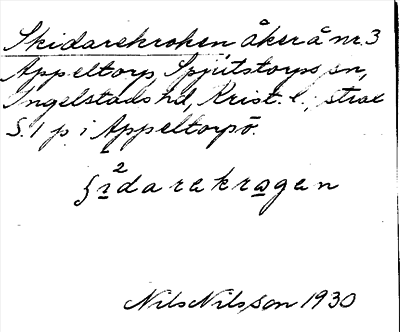 Skidarekroken åker å nr. 3
Appeltorp, Spjutstorps sn,
Ingelstads hd, Krist. l., strax
S. 1 p i Appeltorp
2
darekragan
Nils Nilsson 1930